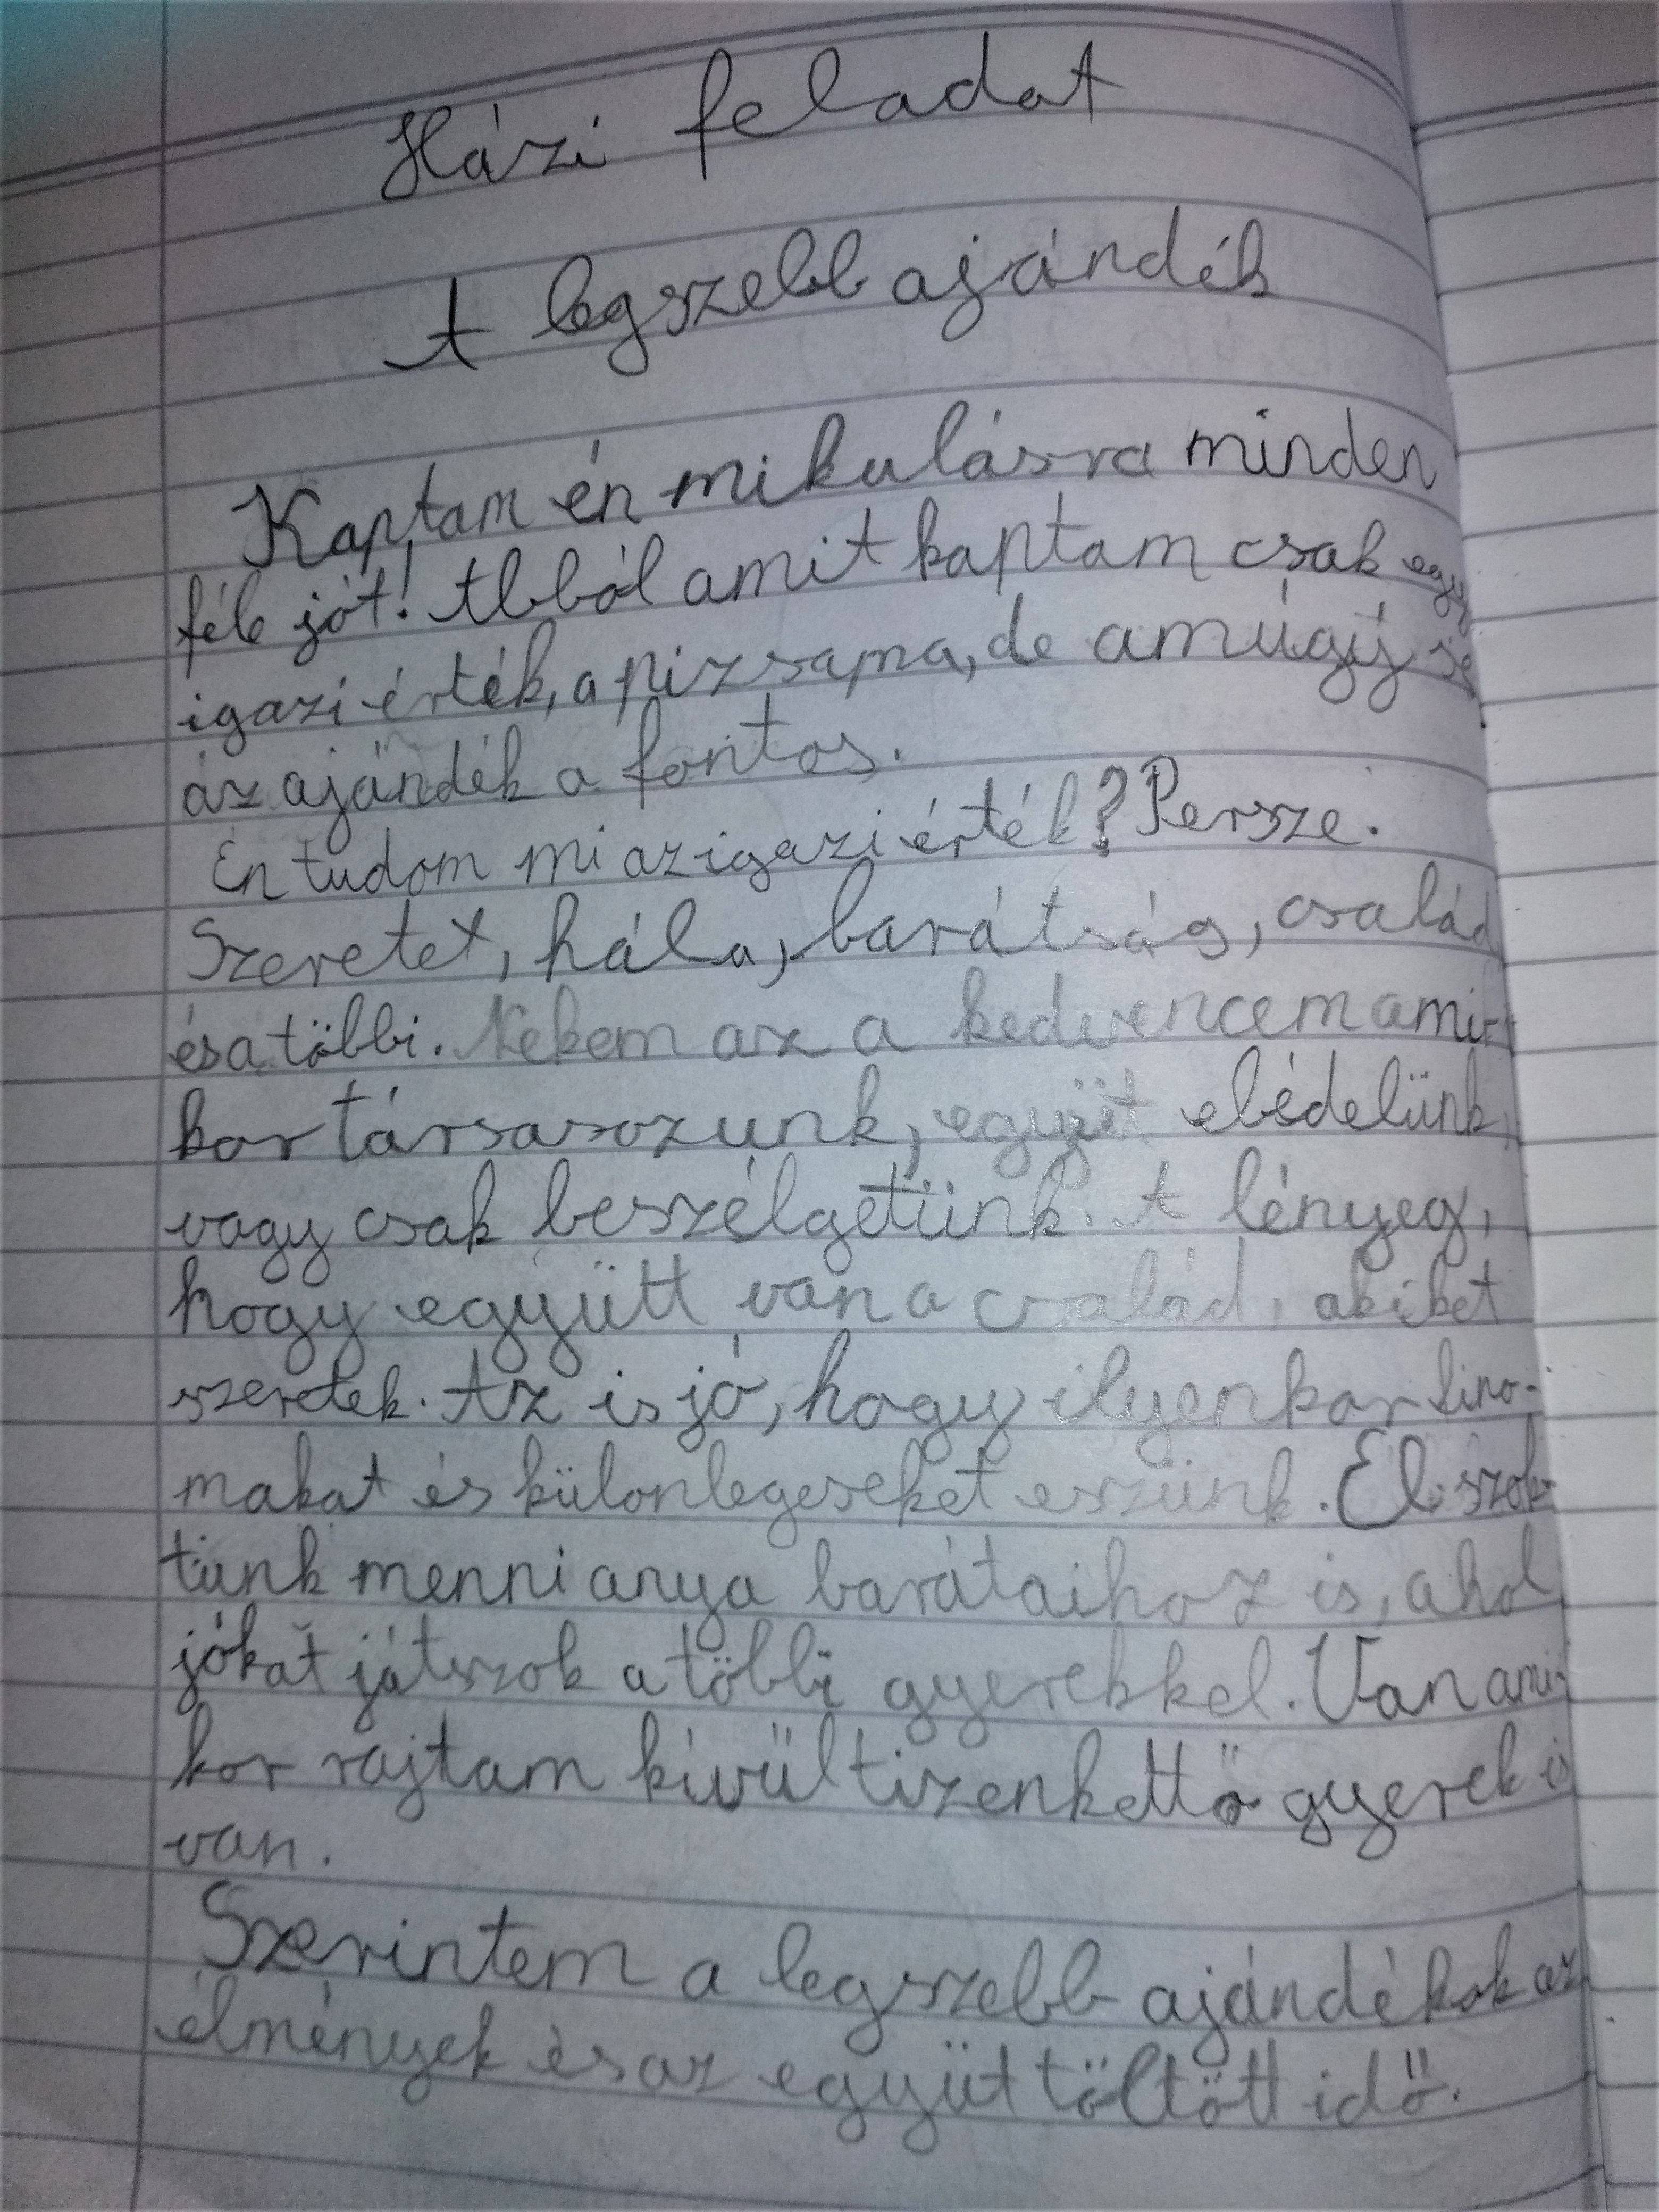 Házi feladat
A legszebb ajándék
Kaptam én mikulásra minden
féle jót! Abból amit kaptam csak egy
igazi érték, a pizsapma, de amúgy se
az ajándék a fontos.
Én tudom mi az igazi érték? Persze.
Szeretet, hála, barátság, család
és a többi. Nekem az a kedvencem ami-
kor társasozunk, együt ebédelünk,
vagy csak beszélgetünk. A lényeg,
hogy együtt van a család, akiket
szeretek. Az is jó, hogy ilyenkor fino-
makat és különlegeseket eszünk. El szok-
tunk menni anya barátaihoz is, ahol
jókat játszok a többi gyerekkel. Van ami-
kor rajtam kívül tizenkettő gyerek is
van.
Szerintem a legszebb ajándékok az
élmények és az együt töltött idő.